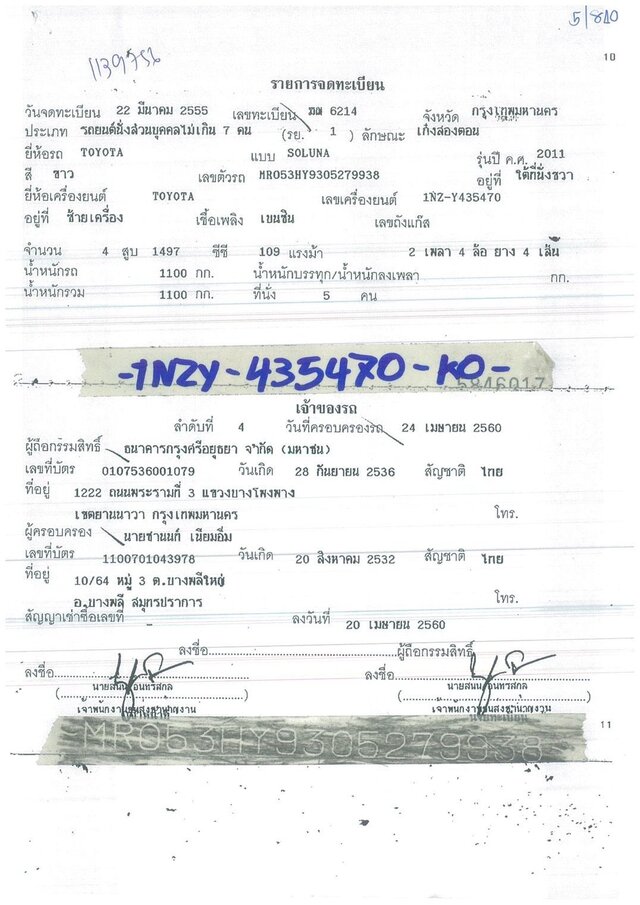 5/840
1139756
10
รายการจดทะเบียน
วันจดทะเบียน 22 มีนาคม 2555 เลขทะเบียน 6214 จังหวัด กรุงเทพมหานคร
ประเภท รถยนต์นั่งส่วนบุคคลไม่เกิน 7 คน (รย. 1 ) ลักษณะ เก๋งสองตอน
ยี่ห้อรถ TOYOTA แบบ SOLUNA รุ่นปี ค.ศ. 2011
สี ขาว เลขตัวรถ MR053HY9305279938 อยู่ที่ ใต้ที่นั่งขวา
ยี่ห้อเครื่องยนต์ TOYOTA เลขเครื่องยนต์ 1NZ-Y435470
อยู่ที่ ซ้ายเครื่อง เชื้อเพลิง เบนซิน เลขถังแก๊ส
จำนวน 4 สูบ 1497 ซีซี 109 แรงม้า 2 เพลา 4 ล้อ ยาง 4 เส้น
น้ำหนักรถ 1100 กก. น้ำหนักบรรทุก/น้ำหนักลงเพลา กก.
น้ำหนักรวม 1100 กก. ที่นั่ง 5 คน
-1NZY-435470-KO-
5846017
เจ้าของรถ
ลำดับที่ 4 วันที่ครอบครองรถ 24 เมษายน 2560
ผู้ถือกรรมสิทธิ์ ธนาคารกรุงศรีอยุธยา จำกัด (มหาชน)
เลขที่บัตร 0107536001079 วันเกิด 28 กันยายน 2536 สัญชาติ ไทย
ที่อยู่ 1222 ถนนพระรามที่ 3 แขวงบางโพงพาง
เขตยานนาวา กรุงเทพมหานคร โทร.
ผู้ครอบครอง นายชานนท์ เนียมอิ่ม
เลขที่บัตร 1100701043978 วันเกิด 20 สิงหาคม 2532 สัญชาติ ไทย
ที่อยู่ 10/64 หมู่ 3 ต.บางพลีใหญ่
อ.บางพลี สมุทรปราการ โทร.
สัญญาเช่าซื้อเลขที่ - ลงวันที่ 20 เมษายน 2560
ลงชื่อ ผู้ถือกรรมสิทธิ์
ลงชื่อ ลงชื่อ
11
MR053HY9305279938